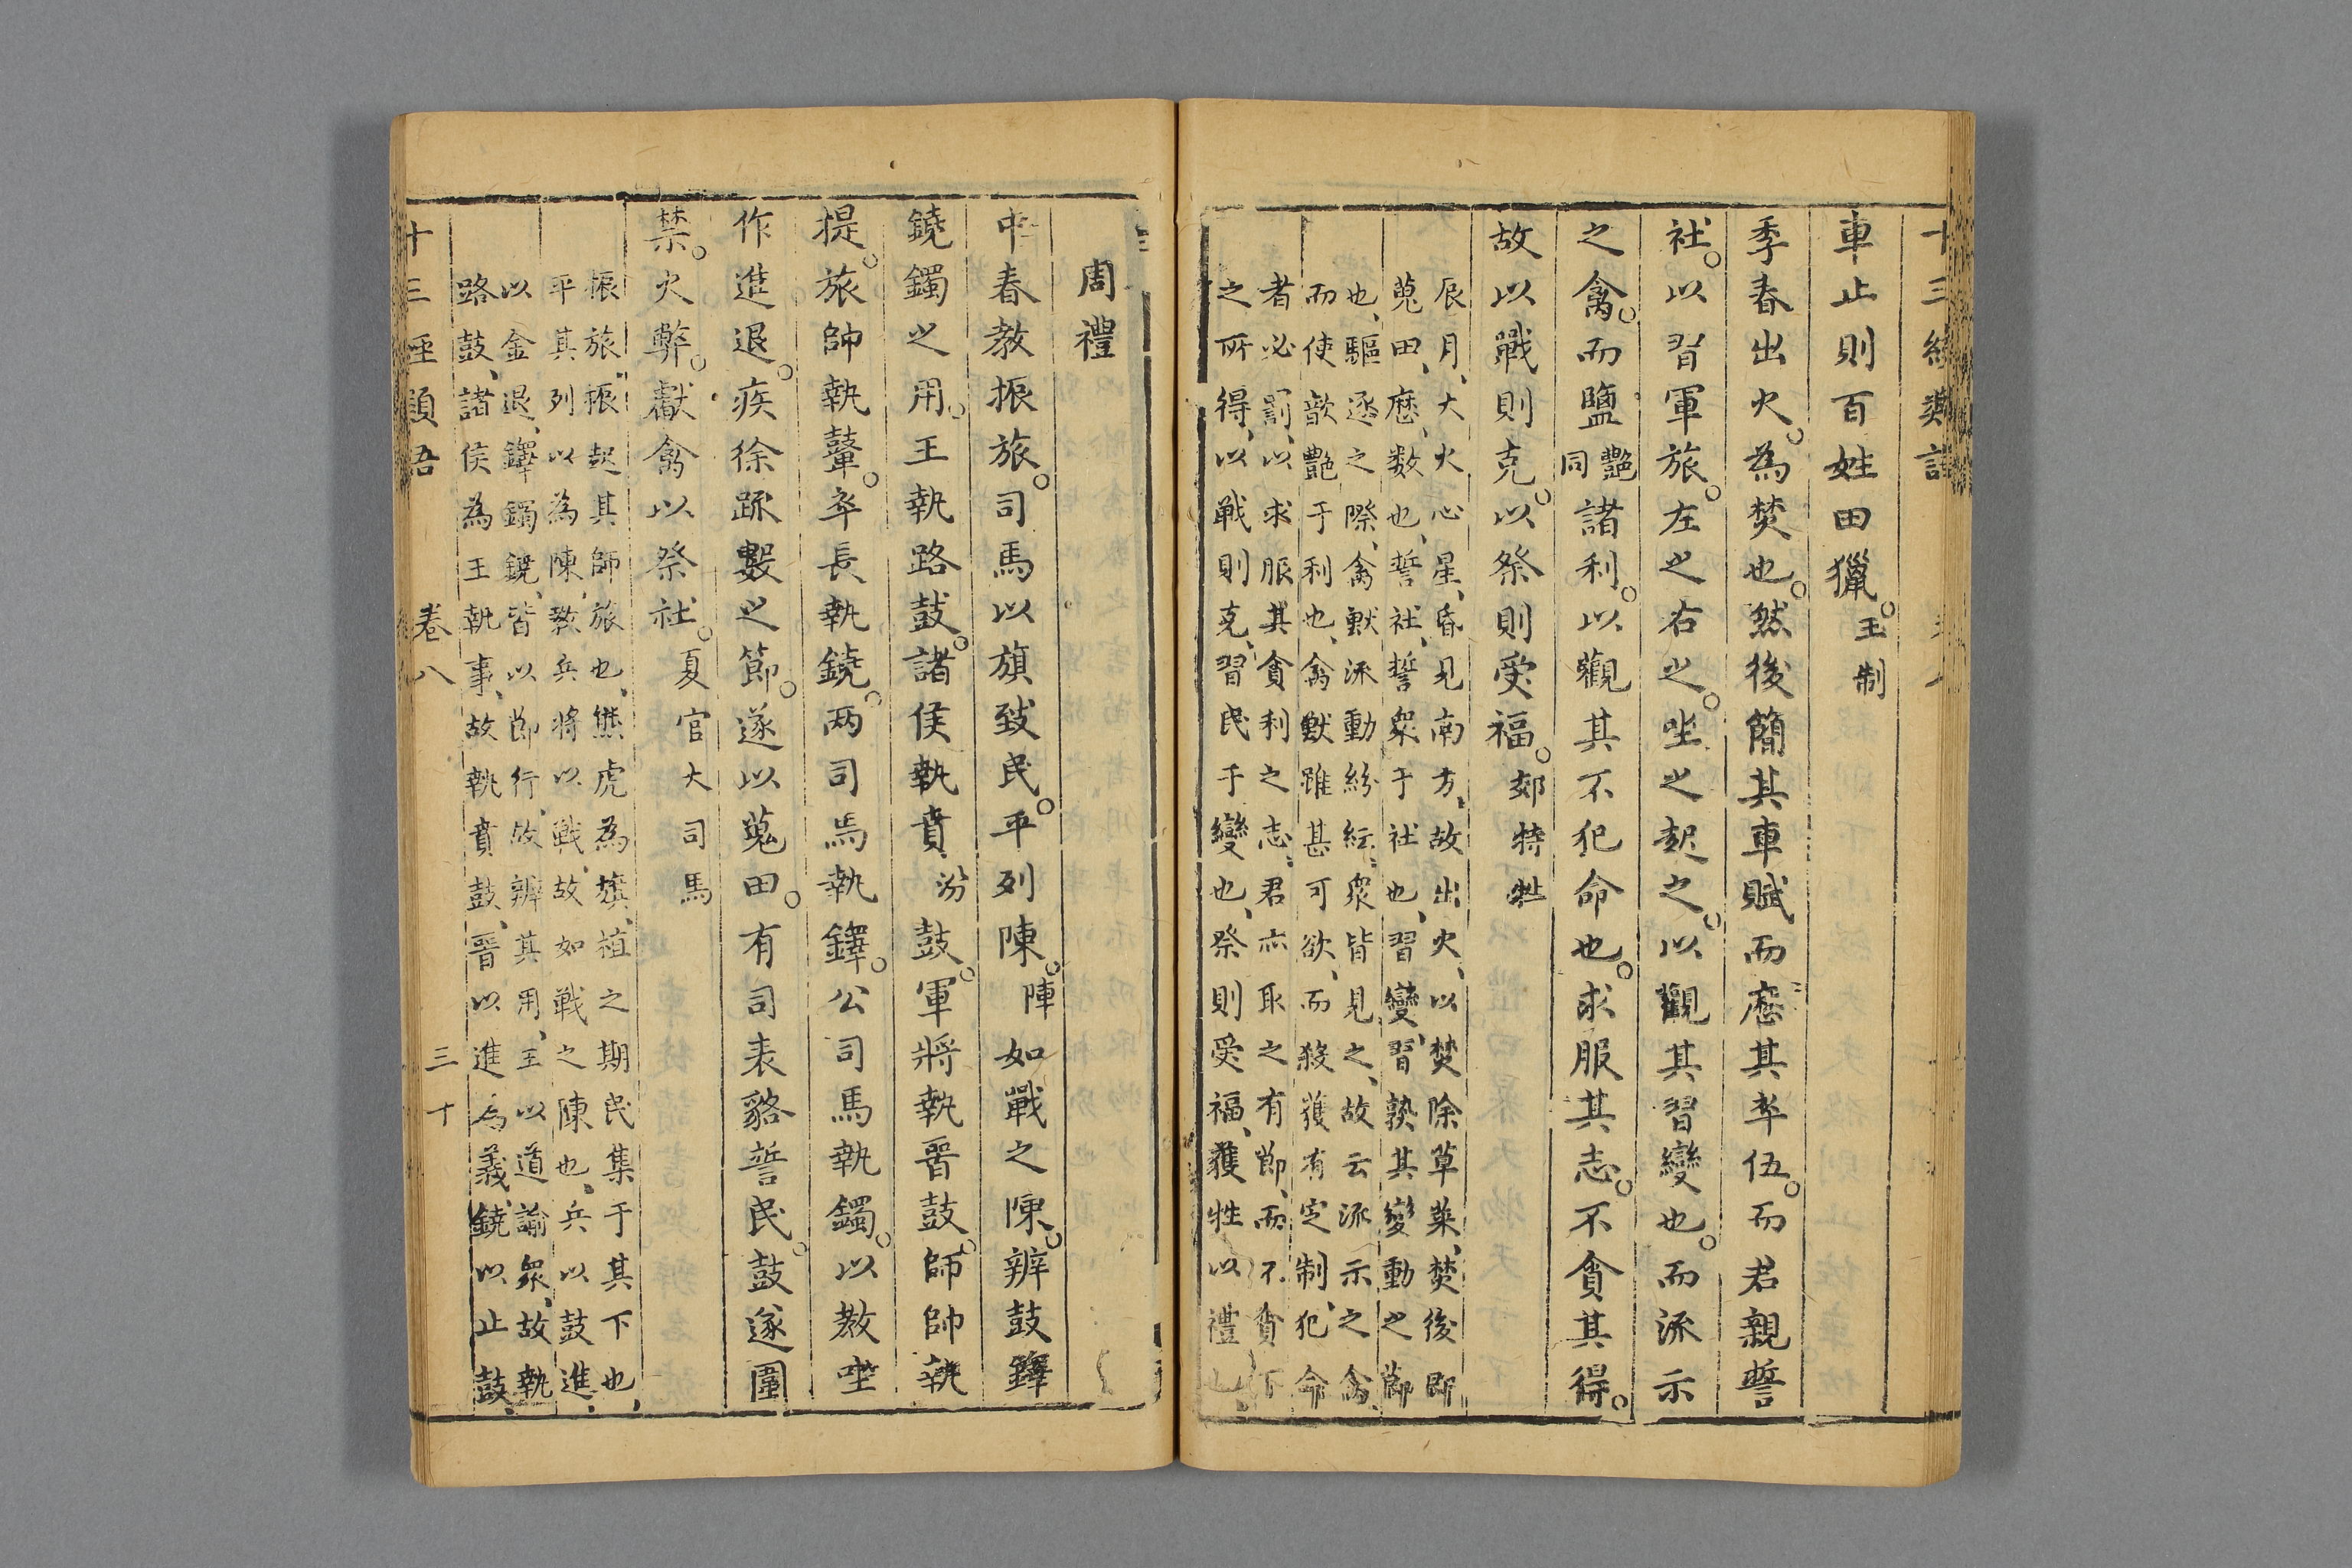 車止則百姓田獵。王制
季春出火。為焚也。然後簡其車賦而歷其卒伍。而君親誓
社。以習軍旅。左之右之。坐之起之。以觀其習變也。而流示
之禽。而鹽艷同諸利。以觀其不犯命也。求服其志。不貪其得。
故以戰則克。以祭則受福。郊特牲
辰月、大火心星、昏見南方、故出火、以焚除草萊、焚後即
蒐田、歷、数也、誓社、誓衆于社也、習變、習熟其變動之節
也、驅逐之際、禽獸流動紛紜、衆皆見之、故云流示之禽、
而使歆艷于利也、禽獸雖甚可欲、而殺獲有定制、犯命
者必罰、以求服其貪利之志、君亦取之有節、而不貪下
之所得、以戰則克、習民于變也、祭則受福、獲牲以禮也、
周禮
中春教振旅。司馬以旗致民。平列陳。陣如戰之陳。辨鼓鐸
鐃鐲之用。王執路鼓。諸侯執賁汾鼓。軍將執晉鼓。師帥執
提。旅帥執鼙。卒長執鐃。两司馬執鐸。公司馬執鐲。以教坐
作進退。疾徐疏數之節。遂以蒐田。有司表貉誓民。鼓遂圍
禁。火弊。獻禽以祭社。夏官大司馬
振旅、振起其師旅也、熊虎為旗、植之期民集于其下也、
平其列以為陳、教兵將以戰、故如戰之陳也、兵以鼓進、
以金退、鐸鐲鐃、皆以節行、故辨其用、王以道諭衆、故執
路鼓、諸侯為王執事、故執賁鼓、晉以進為義、鐃以止鼓、
卷八
三十